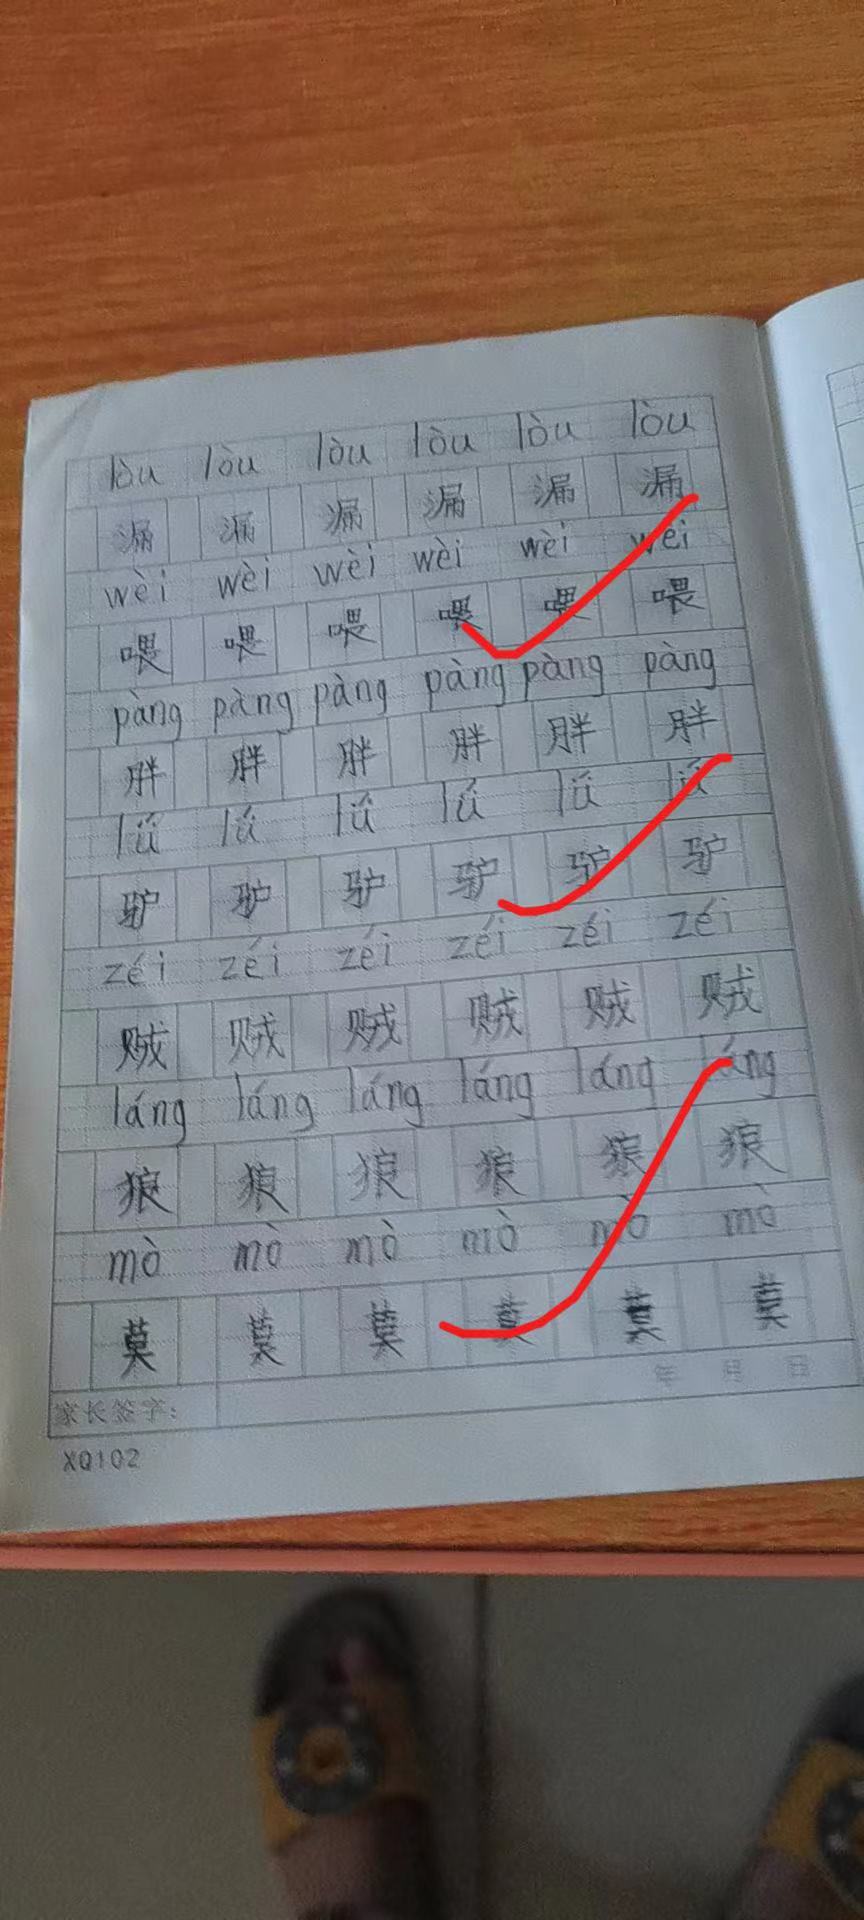 lòu lòu lòu lòu lòu lòu
漏 漏 漏 漏 漏 漏
wèi wèi wèi wèi wèi wèi
喂 喂 喂 喂 喂 喂
pàng pàng pàng pàng pàng pàng
胖 胖 胖 胖 胖 胖
lǘ lǘ lǘ lǘ lǘ lǘ
驴 驴 驴 驴 驴 驴
zéi zéi zéi zéi zéi zéi
贼 贼 贼 贼 贼 贼
láng láng láng láng láng láng
狼 狼 狼 狼 狼 狼
mò mò mò mò mò mò
莫 莫 莫 莫 莫 莫
家长签字: 年 月 日
XQ102